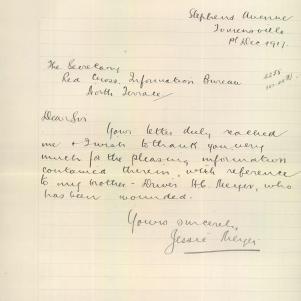 Stephens Avenue
Torrensville
1st Dec 1917.
The Secretary
Red Cross Information Bureau
North Terrace
Dear Sir
Your letter duly reached
me & I wish to thank you very
much for the pleasing information
contained therein, with reference
to my brother - Driver H.C. Meyer, who
has been wounded.
Yours sincerely,
Jessie Meyer